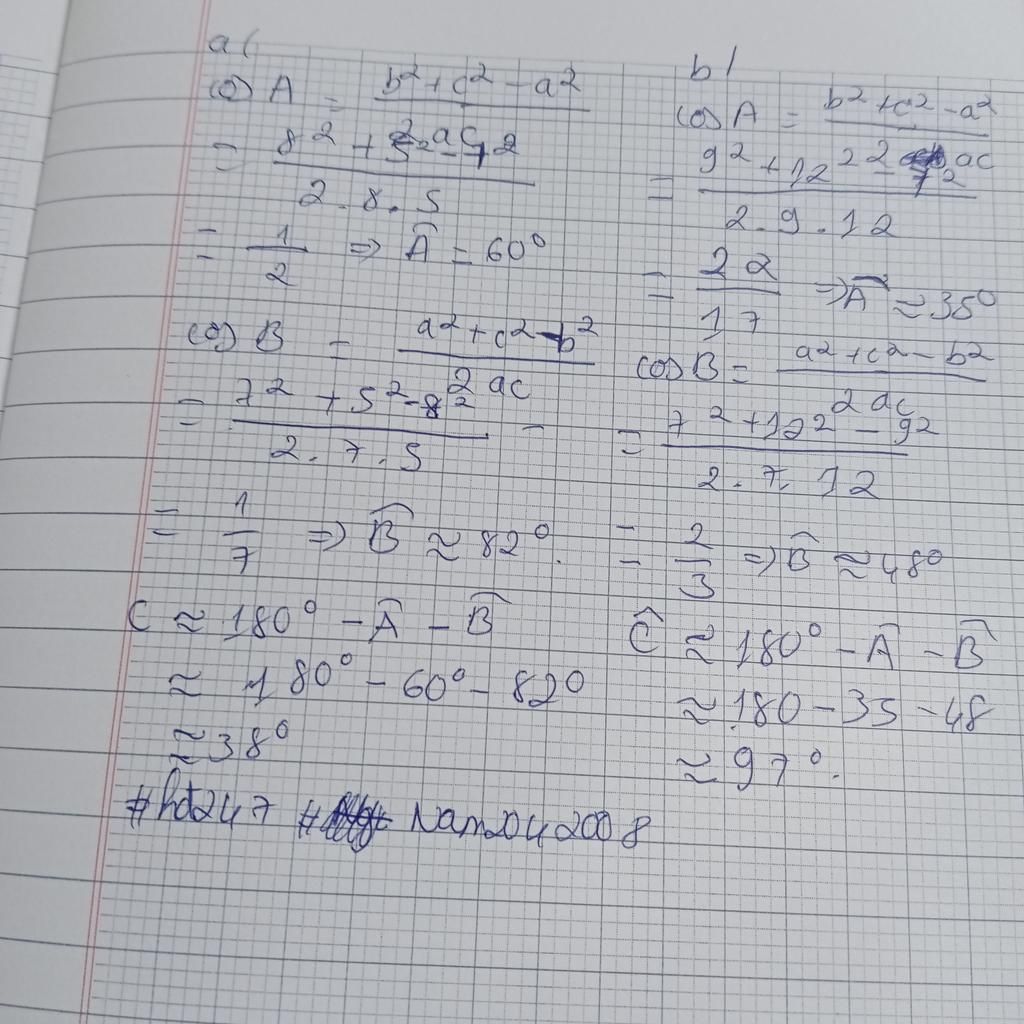 a(
cos A = b² + c² - a² / 2 ac
= 8² + 5² - 7² / 2.8.5
= 1/2 => Â = 60°
cos B = a² + c² - b² / 2 ac
= 7² + 5² - 8² / 2.7.5 =
= 1/7 => B̂ ≈ 82°.
C ≈ 180° - Â - B̂
≈ 180° - 60° - 82°
≈ 38°
b/
cos A = b² + c² - a² / 2 ac
= 9² + 12² - 7² / 2.9.12
= 22/17 => Â ≈ 35°
cos B = a² + c² - b² / 2 ac
= 7² + 12² - 9² / 2.7.12
= 2/3 => B̂ ≈ 48°
Ĉ ≈ 180° - Â - B̂
≈ 180 - 35 - 48
≈ 97°.
#hd247 # Nam2042008